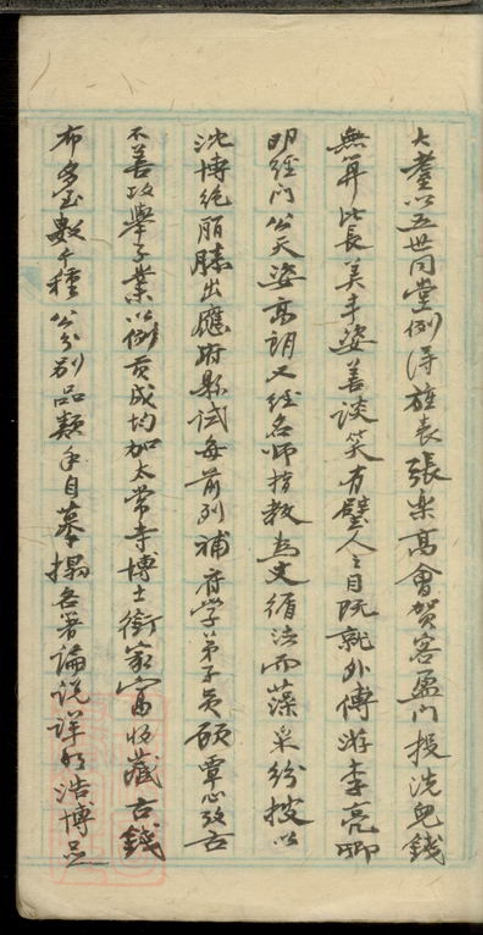 大耋以五世同堂例得旌表張樂高會賀客盈門投洗兒錢
無算比長美丰姿善談笑有璧人之目既就外傅游李亮卿
明經門公天姿高朗又經名師指教為文循法而藻采紛披以
沈博絕麗勝出應府縣試每前列補府學弟子員顧覃心攷古
不善攻舉子業以例貢成均加太常寺博士銜家富收藏古錢
布多至數千種公分別品類手自摹搨各著論說詳明浩博至